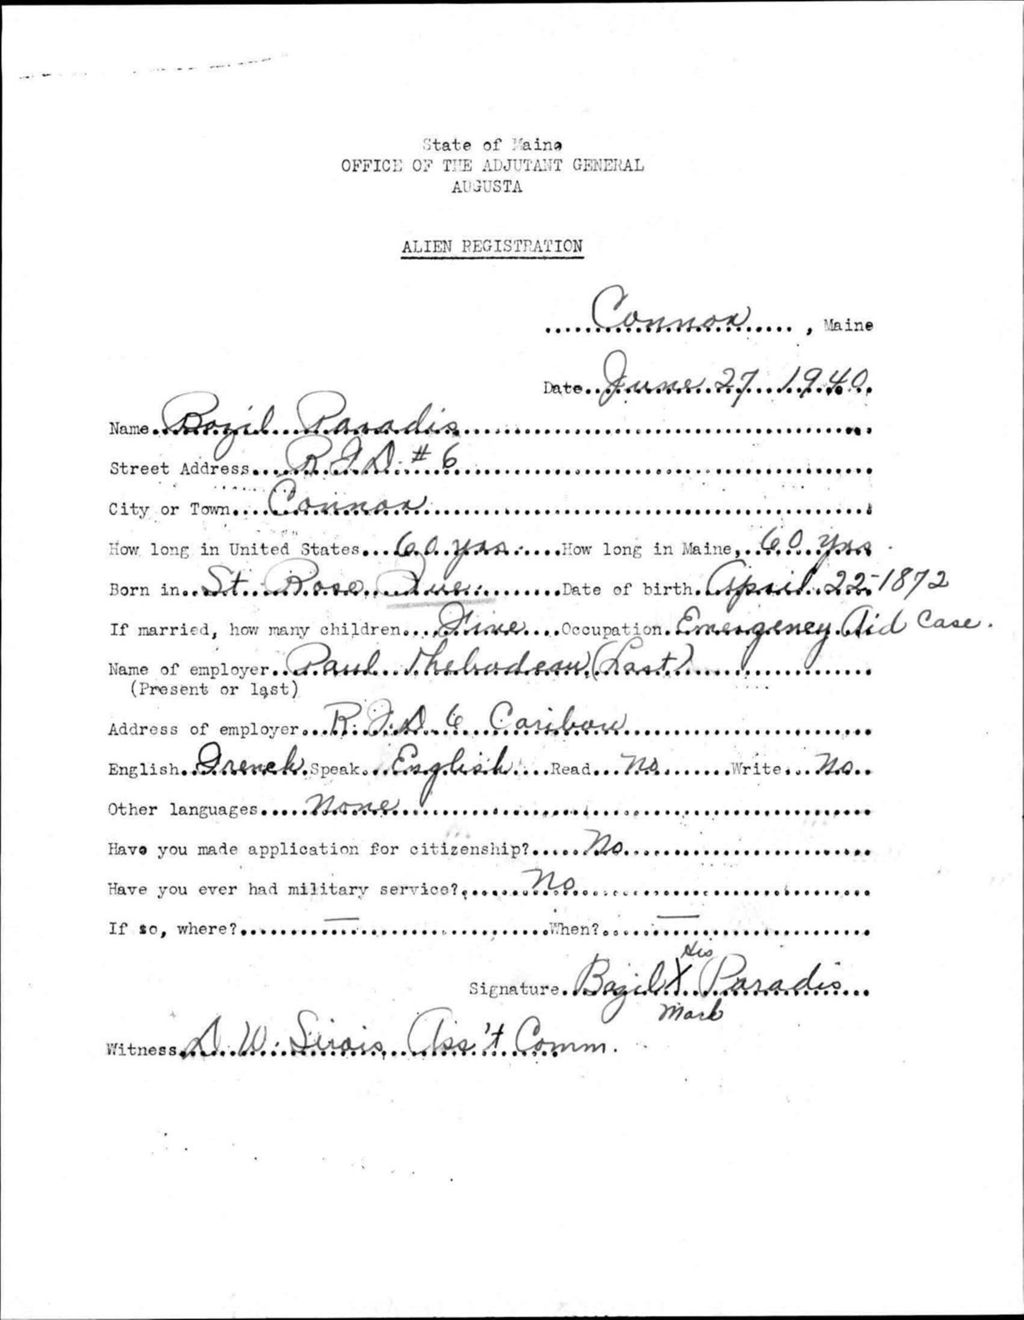 State of Maine
OFFICE OF THE ADJUTANT GENERAL
AUGUSTA
ALIEN REGISTRATION
Connor, Maine
Date June 27 1940
Name Bazil Paradis
Street Address R.F.D. # 6
City or Town Connor
How long in United States 60 yrs How long in Maine, 60 yrs
Born in St. Rose, Que. Date of birth April 22-1872
If married, how many children Five Occupation Emergency Aid Case.
Name of employer Paul Thebodeau (Last)
(Present or last)
Address of employer R.F.D. 6 Caribou
English French Speak English Read No Write No
Other languages None
Have you made application for citizenship? No
Have you ever had military service? No
If so, where? — When? —
His
Signature Bazil X Paradis
Mark
Witness D. W. Sirois, Ass't Comm.